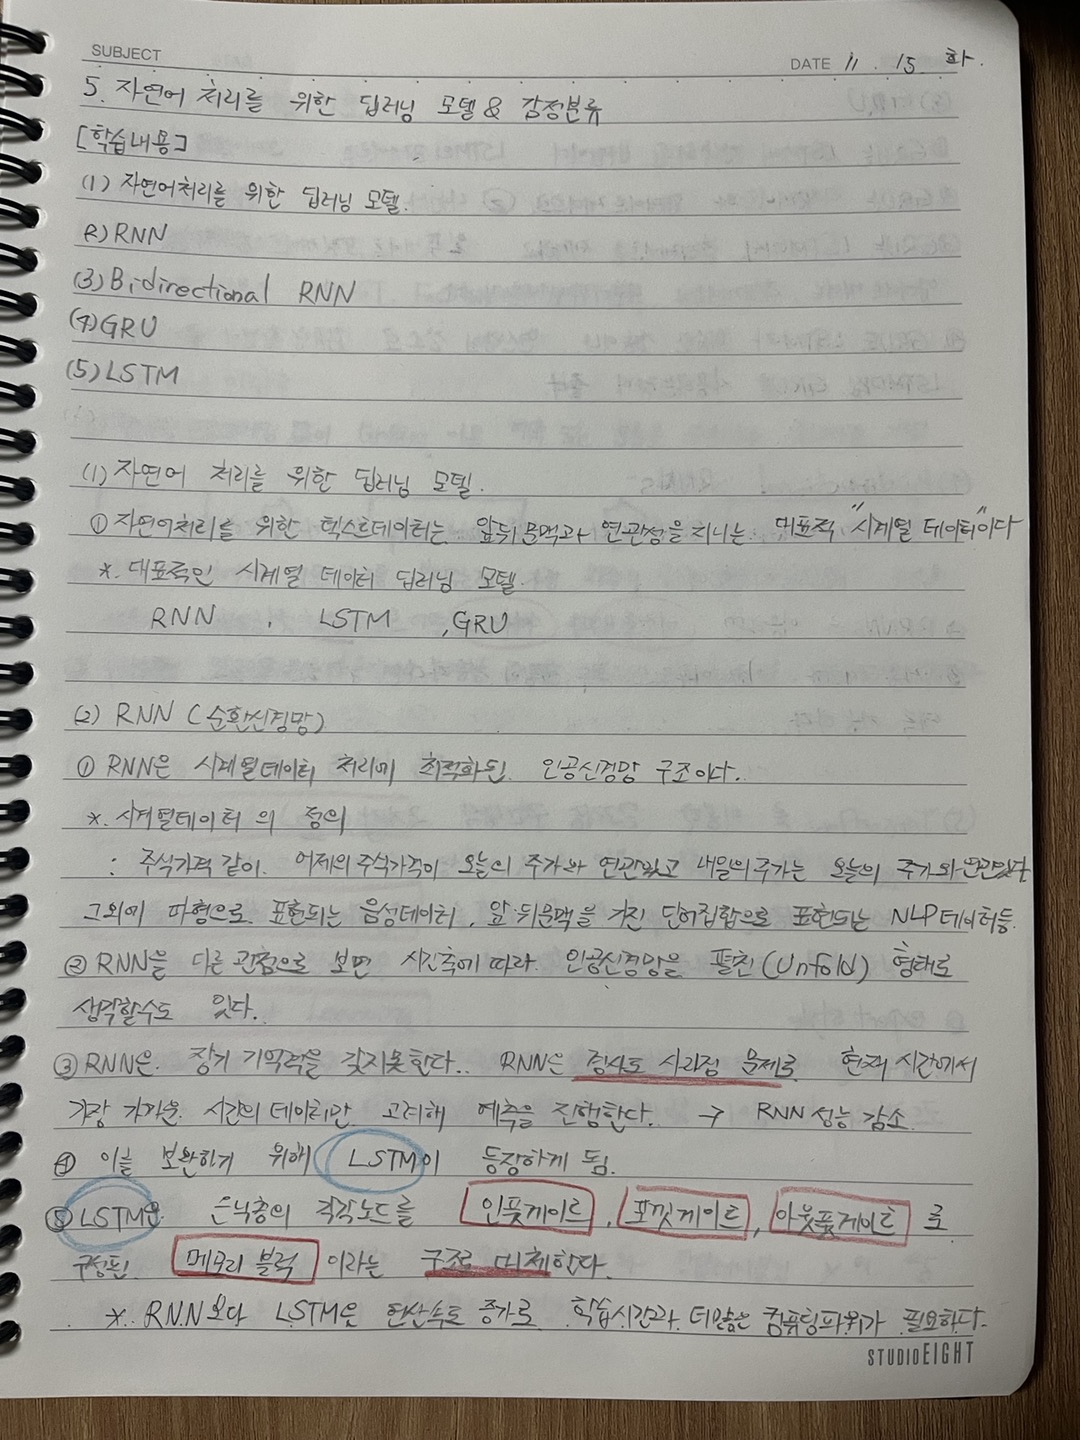 SUBJECT
DATE 11 . 15 . 화.
5. 자연어 처리를 위한 딥러닝 모델 & 감정분류
[학습내용]
(1) 자연어처리를 위한 딥러닝 모델.
(2) RNN
(3) Bidirectional RNN
(4) GRU
(5) LSTM
(1) 자연어 처리를 위한 딥러닝 모델.
① 자연어처리를 위한 텍스트데이터는 앞뒤 문맥과 연관성을 지니는 대표적 "시계열 데이터"이다
*. 대표적인 시계열 데이터 딥러닝 모델.
RNN , LSTM , GRU
(2) RNN (순환신경망)
① RNN은 시계열데이터 처리에 최적화된 인공신경망 구조이다.
*. 시계열데이터 의 정의
: 주식가격 같이. 어제의 주식가격이 오늘의 주가와 연관있고 내일의 주가는 오늘의 주가와 연관있다
그외에 파형으로 표현되는 음성데이터, 앞.뒤문맥을 가진 단어집합으로 표현되는 NLP데이터등.
② RNN을 다른 관점으로 보면 시간축에 따라. 인공신경망을 펼친 (Unfold) 형태로
생각할수도 있다.
③ RNN은. 장기 기억력을 갖지못한다.. RNN은 경사도 사라짐 문제로 현재 시간에서
가장 가까운 시간의 데이터만 고려해 예측을 진행한다. → RNN 성능 감소.
④ 이를 보완하기 위해 LSTM이 등장하게 됨.
⑤ LSTM은 은닉층의 각각노드를 인풋게이트 , 포겟게이트 , 아웃풋게이트 로
구성된 메모리 블럭 이라는 구조로 대체한다.
*. RNN보다 LSTM은 연산속도 증가로 학습시간과 더많은 컴퓨팅파워가 필요하다.
STUDIOEIGHT